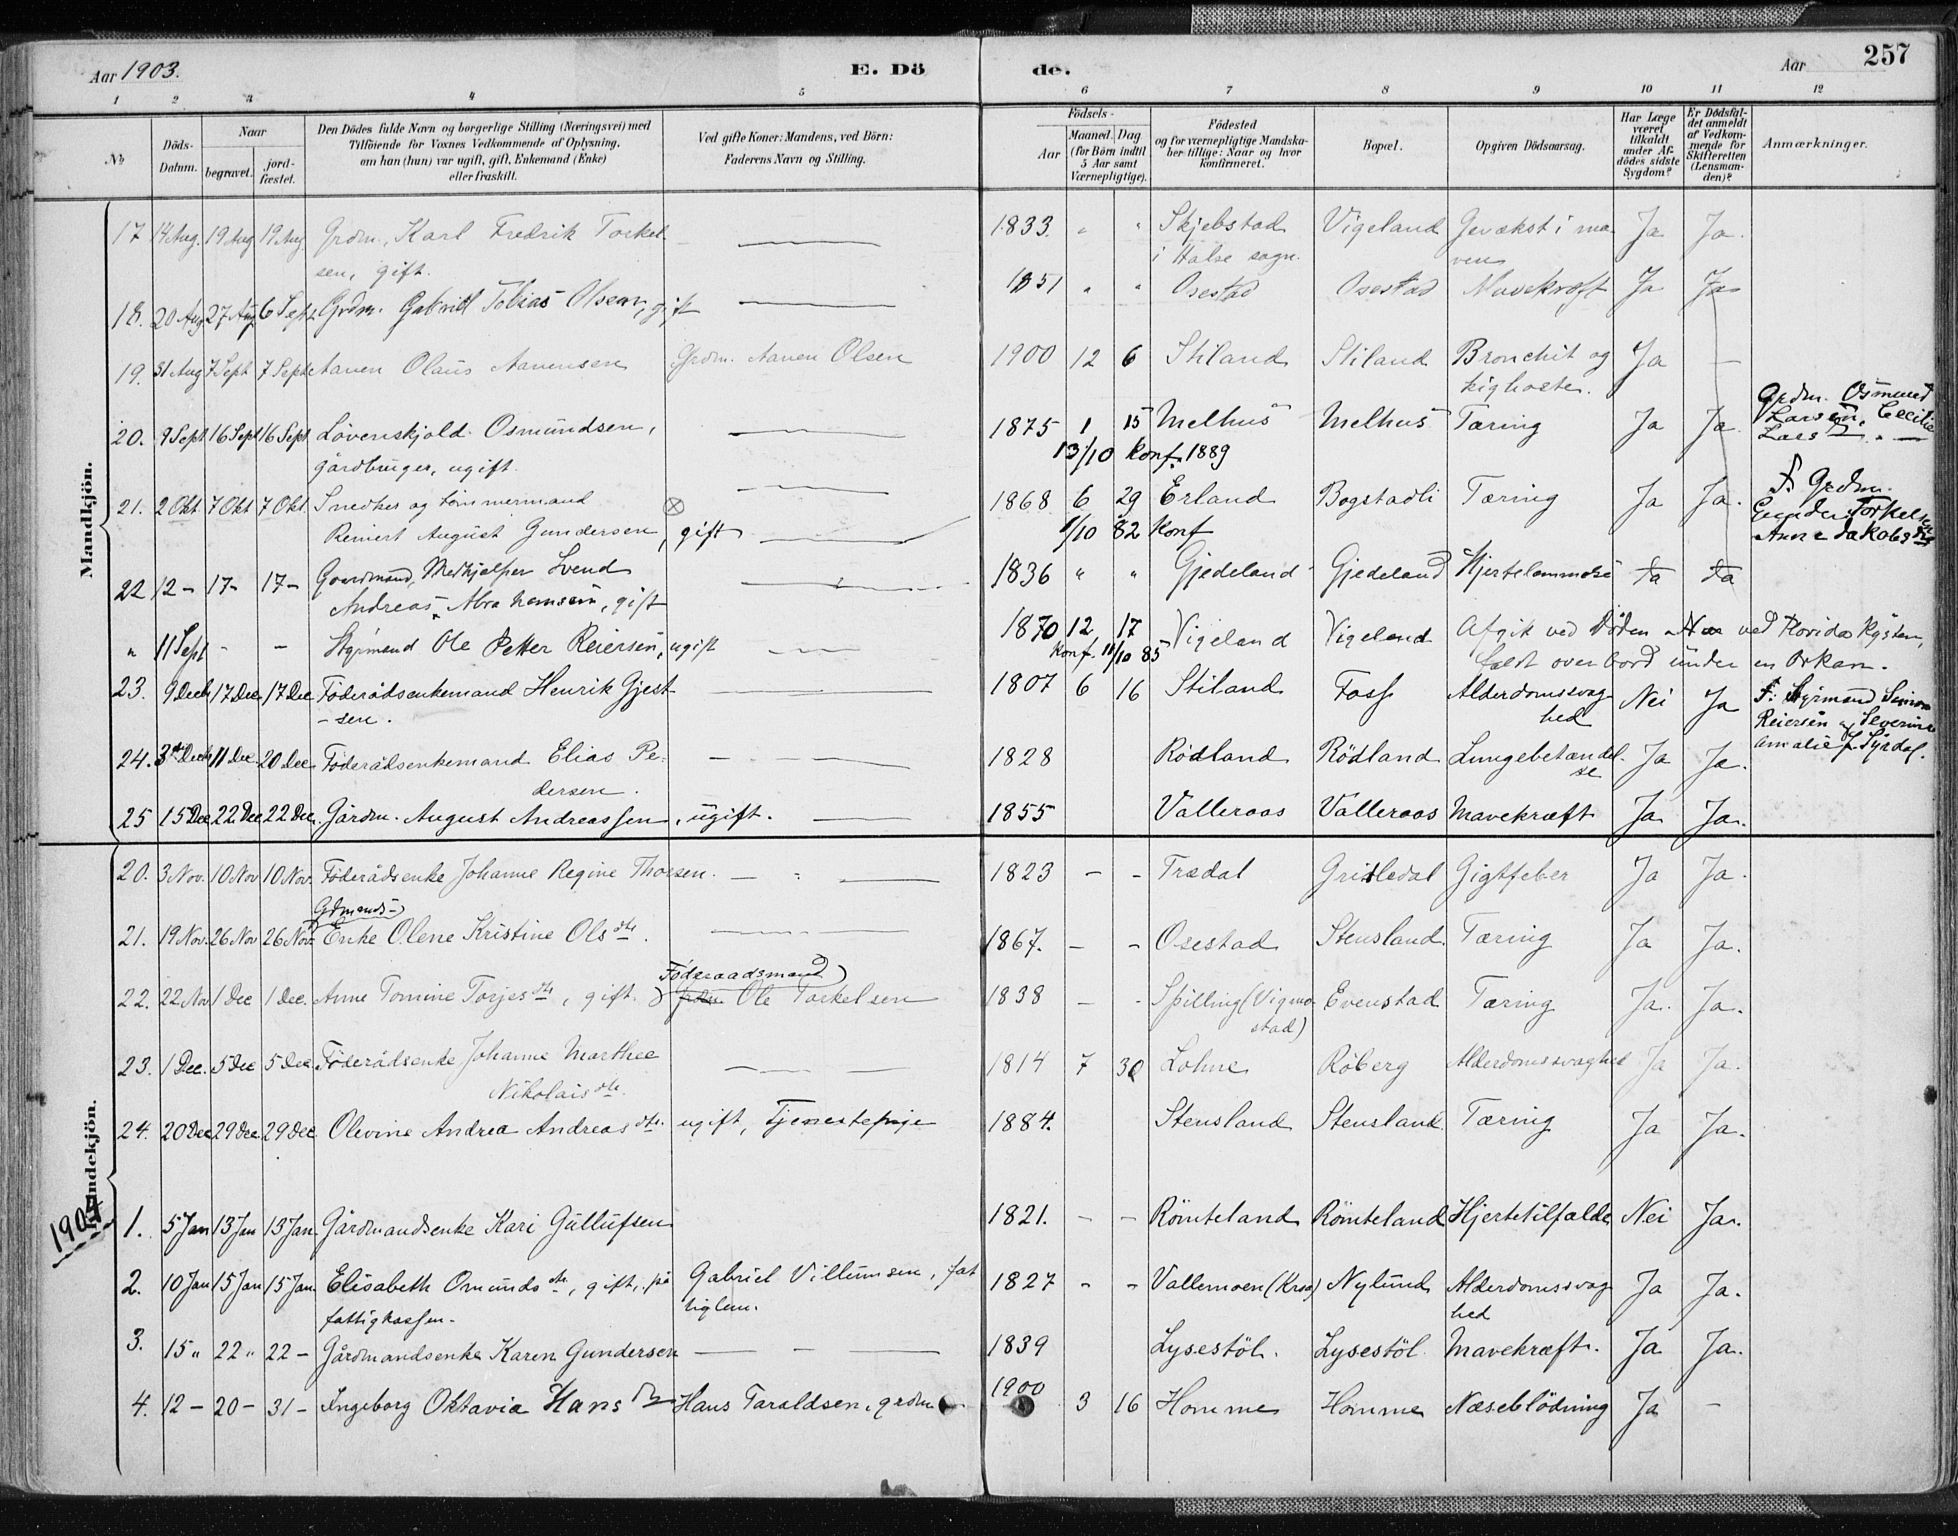 Aar 1903.
E. Dö
de.
Aar
257
1 2 3 4 5 6 7 8 9 10 11 12
No
Döds-Datum.
Naar
begravet.
jord-fæstet.
Den Dödes fulde Navn og borgerlige Stilling (Næringsvei) med
Tilföiende for Voxnes Vedkommende af Oplysning,
om han (hun) var ugift, gift, Enkemand (Enke)
eller fraskilt.
Ved gifte Koner: Mandens, ved Börn:
Faderens Navn og Stilling.
Födsels-
Aar
Maaned. Dag
(for Börn indtil 5 Aar samt Værnepligtige).
Födested
og for værnepligtige Mandska-
ber tillige: Naar og hvor
konfirmeret.
Bopæl.
Opgiven Dödsaarsag.
Har Læge været tilkaldt under Af-dödes sidste Sygdom?
Er Dödsfal-det anmeldt af Vedkom-mende for Skifteretten (Lensman-den)?
Anmærkninger.
Mandkjön.
17 14 Aug. 19 Aug 19 Aug Grdm. Karl Fredrik Torkel- 1833 " " Skjebstad Vigeland Gevækst i ma Ja Ja.
sen, gift. i Halse sogn. ven
18. 20 Aug 27 Aug 6 Sept Grdm. Gabriel Tobias Olsen, gift 1851 " " Osestad Osestad Mavekræft Ja Ja
19. 31 Aug 7 Sept 7 Sept Aanen Olaus Aanensen Grdm. Aanen Olsen 1900 12 6 Stiland Stiland Bronchit og Ja –
kighoste.
20. 9 Sept 16 Sept 16 Sept Løvenskjold Osmundsen, 1875 1 15 Melhus Melhus Tæring Ja Ja Grdm. Osmund Larsen, Cecilie
gårdbruger, ugift. 13/10 konf. 1889
21. 2 Okt. 7 Okt 7 Okt. Snedker og tømmermand ⊗ 1868 6 29 Erland Bogstadli Tæring Ja Ja. F. Grdm.
Reinert August Gundersen, gift 1/10 82 konf Torkelsen
22 12 – 17 – 17 – Gaardmand, Medhjælper Svend 1836 " " Gjedeland Gjedeland Hjertelammelse Ja Ja
Andreas Abrahamsen, gift
" 11 Sept - - Styrmand Ole Petter Reiersen, ugift 1870 12 17 Vigeland Vigeland Afgik ved Døden ved Florida Kysten,
konf. 11/10 85 faldt overbord under en Orkan.
23. 9 Decb 17 Dec 17 Dec Föderådsenkemand Henrik Gjest 1807 6 16 Stiland Foss Alderdomssvag Nei Ja F: Styrmand Simon
– sen. hed Reiersen og Severine
24. 3 Decb 11 Dec. 20 Dec Föderådsenkemand Elias Pe- 1828 Rödland Rödland Lungebetændel- Ja Ja. Amalie f. Syrdal.
dersen. se
25 15 Dec 22 Dec 22 Dec. Gårdm. August Andreassen, ugift. 1855 Valleraas Valleraas Mavekræft Ja Ja.
Kvindekjön.
20. 3 Nov. 10 Nov 10 Nov. Föderådsenke Johanne Regine Thorsen. 1823 – – Trædal Grisledal Gigtfeber Ja Ja.
Gdmands-
21. 19 Nov. 26 Nov 26 Nov. Enke Olene Kristine Olsdtr. 1867. – – Osestad Stensland. Tæring Ja Ja.
Föderaadsmand
22. 22 Nov 1 Dec 1 Dec. Anne Tomine Torjesdtr, gift. grdm Ole Torkelsen 1838 – – Spilling (Vigmo Evenstad Tæring Ja. Ja.
stad)
23. 1 Dec. 5 Dec 5 Dec Föderådsenke Johanne Marthee 1814 7 30 Lohne Röberg Alderdomssvaghed Ja Ja.
Nikolaisdtr.
24. 20 Dec 29 Dec 29 Dec Olevine Andrea Andreasdtr. ugift, Tjenestepige 1884. Stensland Stensland Tæring Ja Ja.
1904
1. 5 Jan 13 Jan 13 Jan. Gårdmandsenke Kari Gullufsen 1821. – – Römteland Römteland Hjertetilfælde Nei Ja.
2. 10 Jan 15 Jan 15 Jan. Elisabeth Omundsdtr, gift, på Gabriel Villumsen, fat 1827 – – Vallemoen (Krag) Nylund Alderdomssvag Ja Ja.
fattigkassen. tiglem. hed
3. 15 " 22 " 22 – Gårdmandsenke Karen Gundersen 1839 Lysestöl. Lysestöl Mavekræft. Ja Ja.
4. 12 – 20 – 31 – Ingeborg Oktavia Hansdtr Hans Taraldsen, grdm 1900 3 16 Homme Homme Næseblödning Ja –